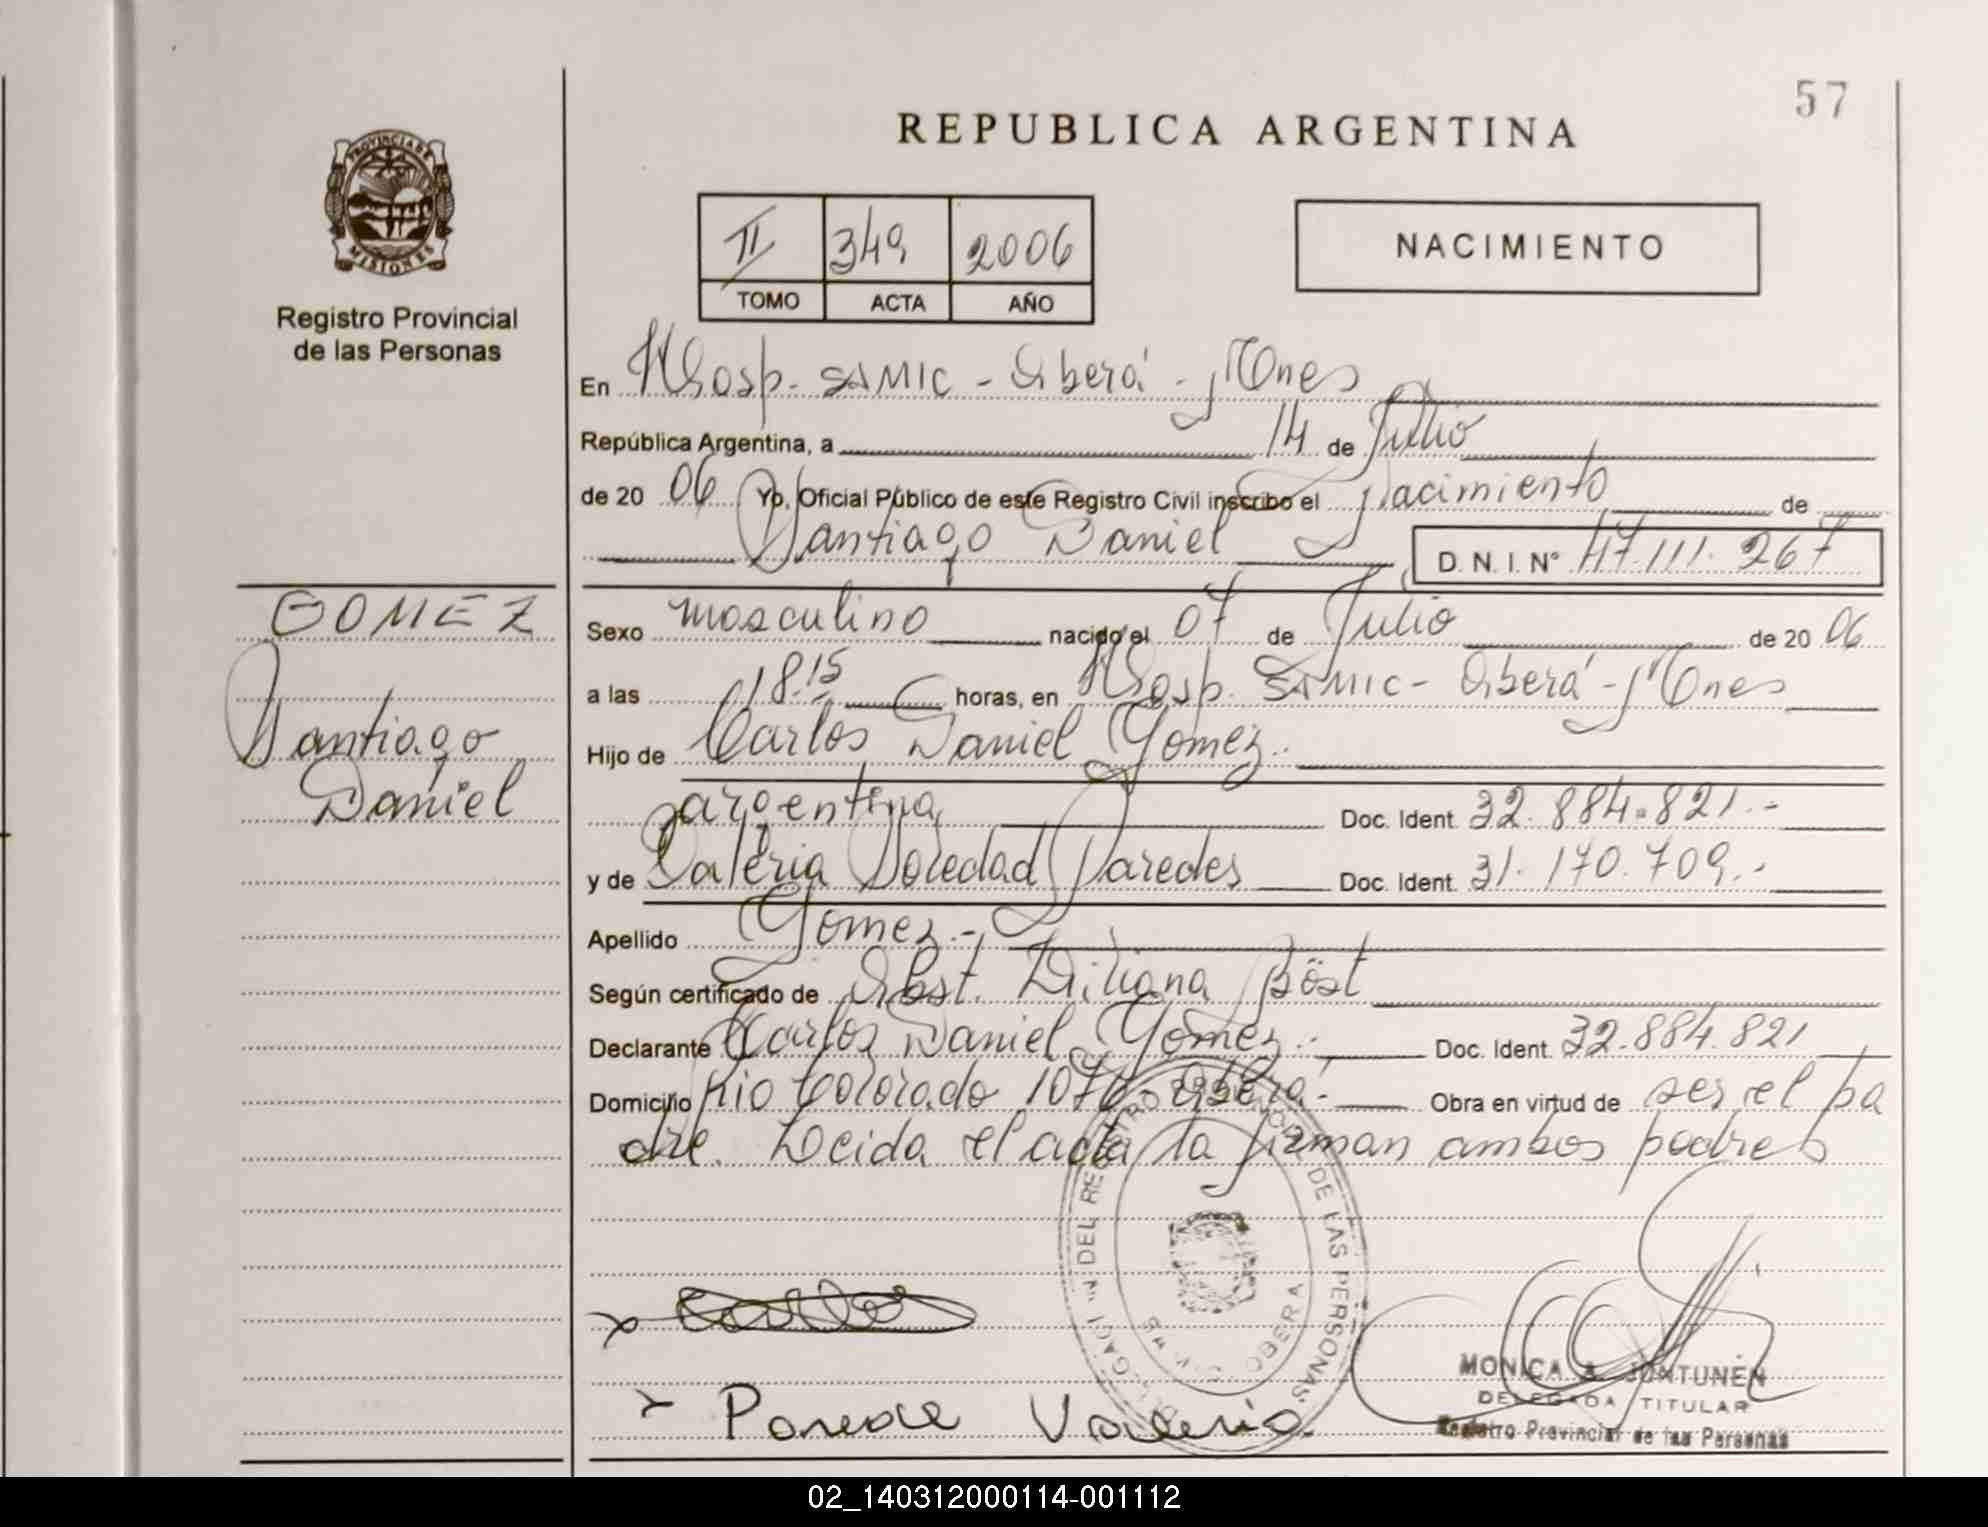 57
PROVINCIA DE
MISIONES
Registro Provincial
de las Personas
REPUBLICA ARGENTINA
II 349 2006
TOMO ACTA AÑO
NACIMIENTO
En Hosp. SAMIC - Oberá - Mnes
República Argentina, a 14 de Julio
de 20 06 Yo, Oficial Público de este Registro Civil inscribo el Nacimiento de
Santiago Daniel D. N. I. N° 47.111.267
GOMEZ
Santiago
Daniel
Sexo masculino nacido el 07 de Julio de 20 06
a las 18.15 horas, en Hosp. SAMIC - Oberá - Mnes
Hijo de Carlos Daniel Gomez.
argentina Doc. Ident. 32.884.821.-
y de Valeria Soledad Paredes Doc. Ident. 31.170.709.-
Apellido Gomez.-
Según certificado de Obst. Liliana Böst
Declarante Carlos Daniel Gomez.- Doc. Ident. 32.884.821
Domicilio Rio Colorado 1070 - Oberá.- Obra en virtud de ser el pa
dre. Leida el acta la firman ambos padres
DEL REGISTRO DE LAS PERSONAS
OBERA
x Carlos
x Parede Valeria.
MONICA A. JUNTUNEN
DELEGADA TITULAR
Registro Provincial de las Personas
02_140312000114-001112